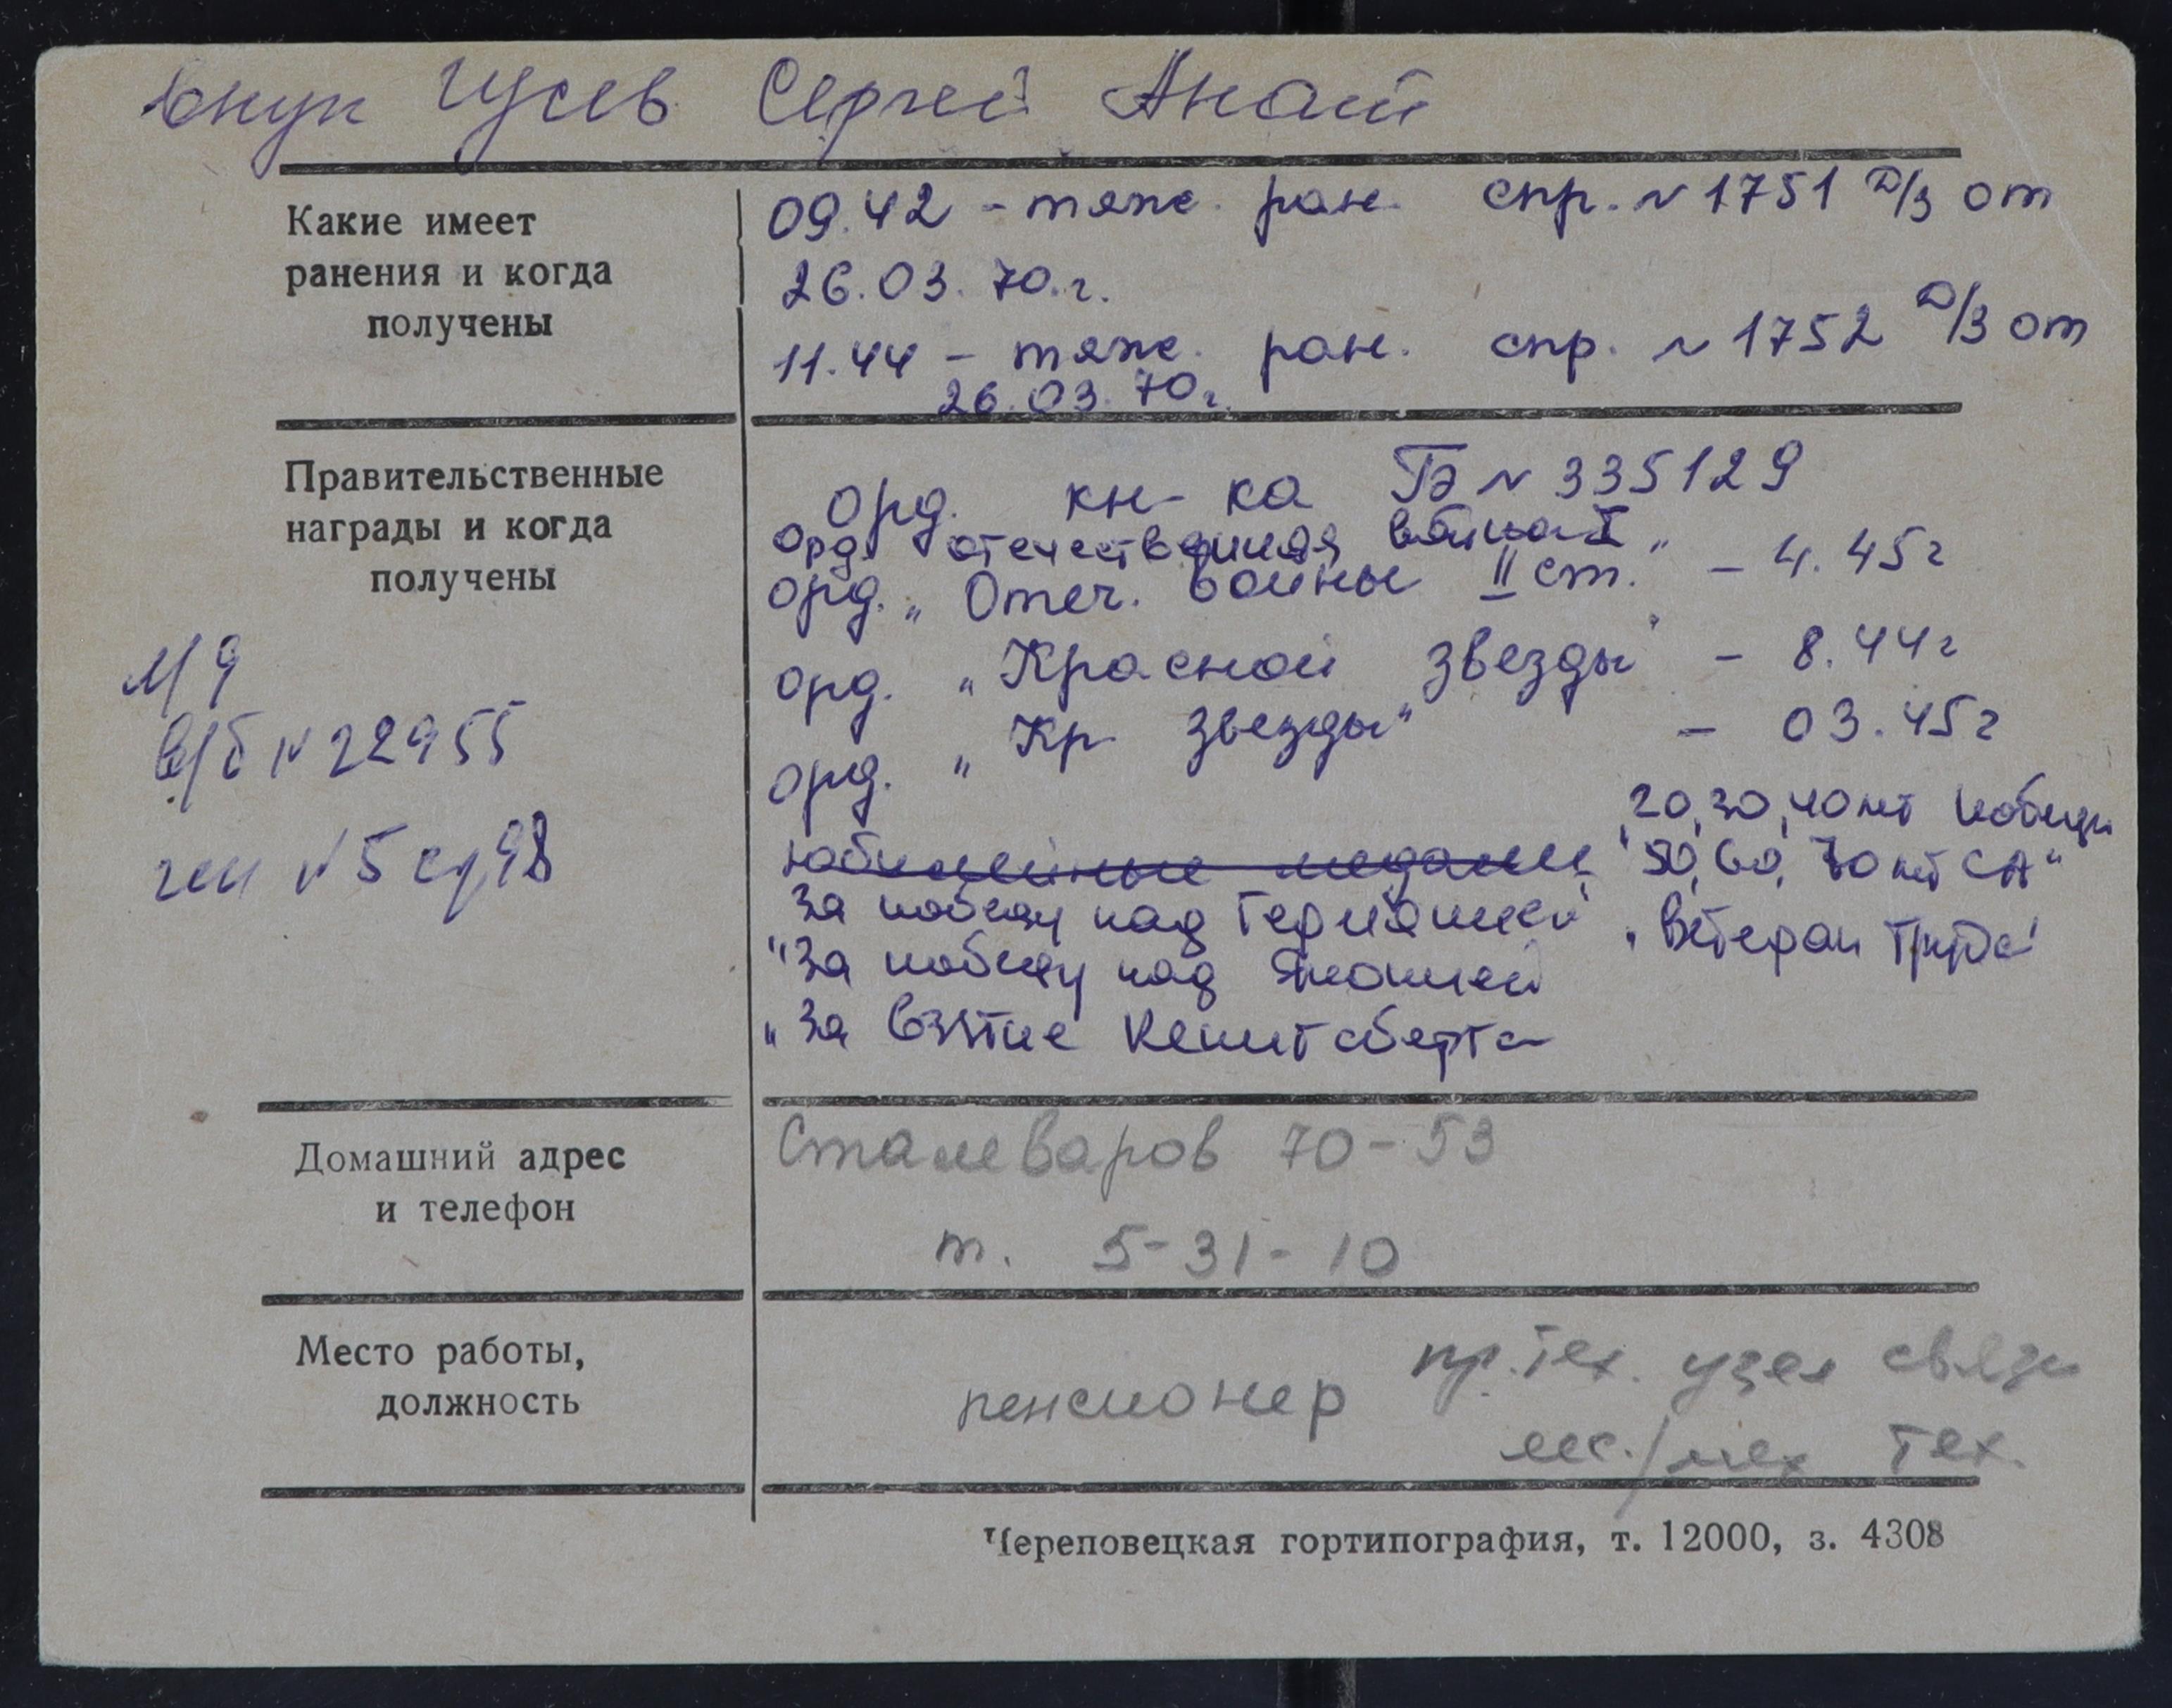 внук Гусев Сергей Анат
Какие имеет
ранения и когда
получены
09.42 - тяж. ран. спр. № 1751 Д/З от
26.03.70.г.
11.44 - тяж. ран. спр. № 1752 Д/З от
26.03.70г.
Правительственные
награды и когда
получены
М 9
в/б № 22955
ги № 5 сд 98
орд. кн-ка ГБ № 335129
орд. отечественная война I"
орд. „Отеч. войны II ст." - 4.45г
орд. „Красной звезды" - 8.44г
орд. „Кр. звезды" - 03.45г
20, 30, 40 лет победы
юбилейные медали "50, 60, 70 лет СА"
За победу над Германией „Ветеран труда"
"За победу над Японией
„За взятие Кенигсберга
Домашний адрес
и телефон
Сталеваров 70-53
т. 5-31-10
Место работы,
должность
пенсионер
пр. тех. узел связи
лес./мех тех.
Череповецкая гортипография, т. 12000, з. 4308